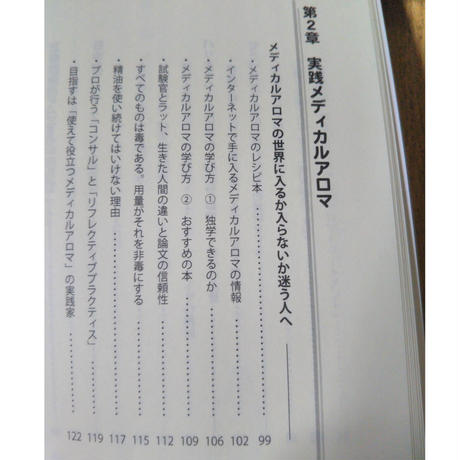 第2章 実践メディカルアロマ
メディカルアロマの世界に入るか入らないか迷う人へ
・メディカルアロマのレシピ本 99
・インターネットで手に入るメディカルアロマの情報 102
・メディカルアロマの学び方 ① 独学できるのか 106
・メディカルアロマの学び方 ② おすすめの本 109
・試験官とラット、生きた人間の違いと論文の信頼性 112
・すべてのものは毒である。用量がそれを非毒にする 115
・精油を使い続けてはいけない理由 117
・プロが行う「コンサル」と「リフレクティブプラクティス」 119
・目指すは「使えて役立つメディカルアロマ」の実践家 122